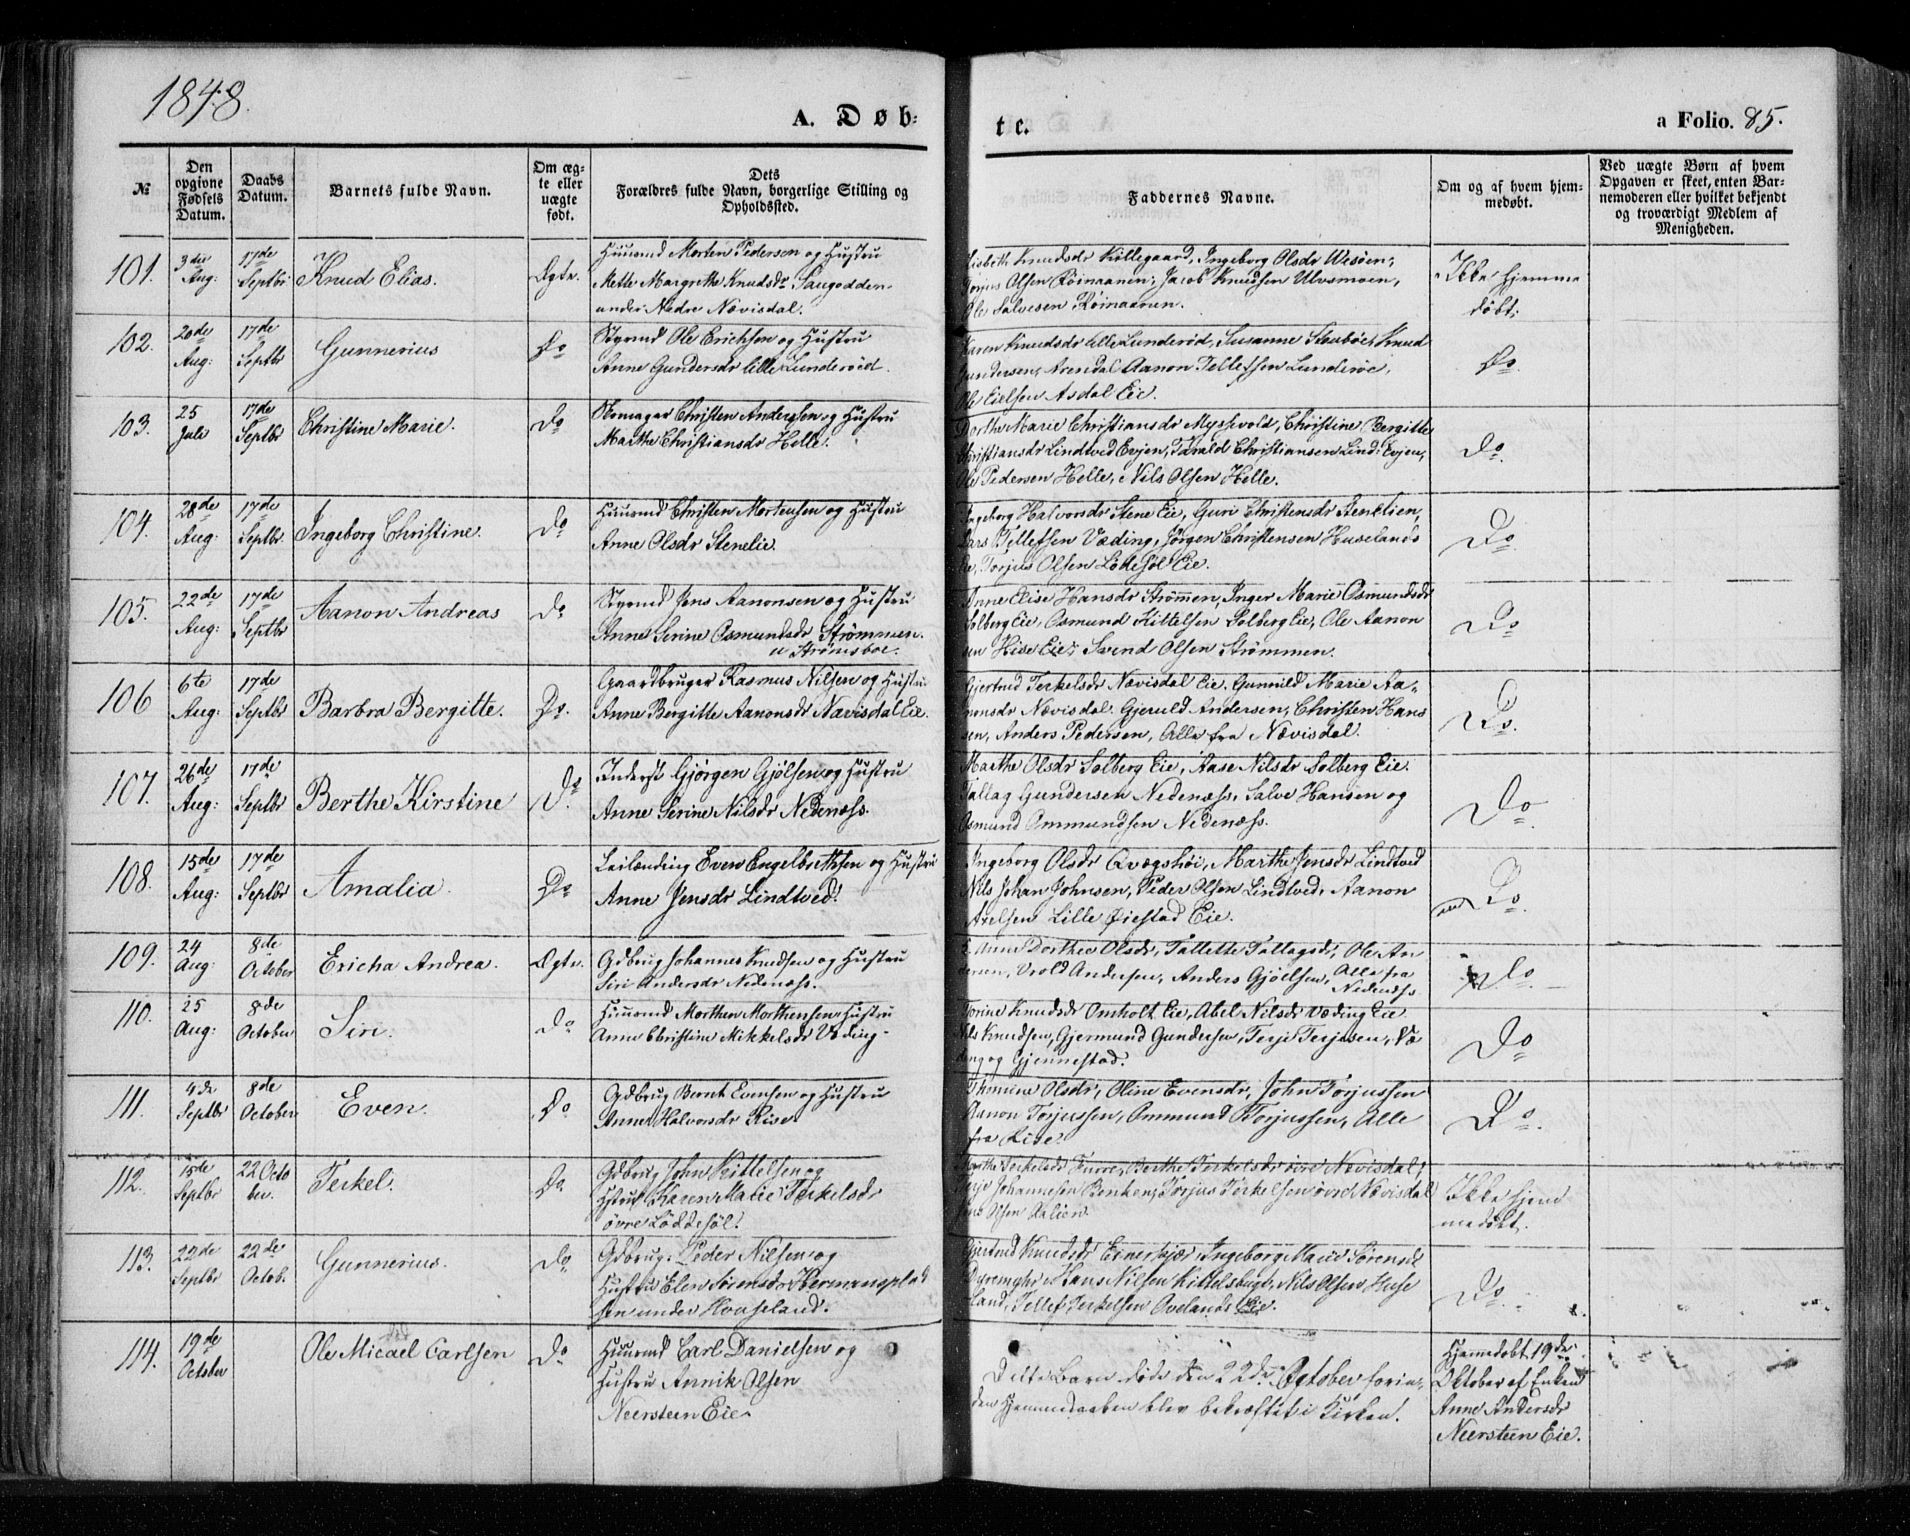 1848.
A. Døb-
te.
a Folio. 85.
№
Den opgivne Fødsels Datum.
Daabs Datum.
Barnets fulde Navn.
Om ægte eller uægte født.
Dets Forældres fulde Navn, borgerlige Stilling og Opholdssted.
Faddernes Navne.
Om og af hvem hjemmedøbt.
Ved uægte Børn af hvem Opgaven er skeet, enten Barnemoderen eller hvilket bekjendt og troværdigt Medlem af Menigheden.
101. 3die Aug: 17de Septbr Knud Elias. Ægte.
Huusmd Morten Pedersen og Hustru
Mette Margrethe Knudsdr Saugodden
under Nedre Nævisdal.
Lisbeth Knudsdr Kollegaard, Ingeborg Olsdr Wesøen;
Torjus Olsen Röinaanen; Jacob Knudsen Ulvsmoen,
Ole Salvesen Röinaanen.
Ikke hjemme
døbt.
102. 20de Aug: 17de Septbr Gunnerius Do
Styrmd Ole Erichsen og Hustru
Anne Gundersdr lille Lunderöd.
Karen Knudsdr lille Lunderød, Susanne Stubøe, Knud
Gundersen, Arendal Aanon Tellefsen Lunderöe,
Ole Eielsen Asdal Eie.
Do.
103. 25 Juli 17de Septbr Christine Marie. Do
Skomager Christen Andersen og Hustru
Marthe Christiansdr Helle.
Dorthe Marie Christiansdr Myssevold, Christine Bergitte
Christiansdr Lindtved Evjen, Tarald Christiansen Lind. Evjen,
Ole Pedersen Helle, Nils Olsen Helle.
Do.
104. 28de Aug: 17de Septbr. Ingeborg Christine. Do
Huusmd Christen Mortensen og Hustru
Anne Olsdr Stenelie.
Ingeborg Halvorsdr Stene Eie, Guri Christensdr
Lars Tellefsen Væding, Jørgen Christensen Huselands
Eie, Torjus Olsen Lødesøl Eie.
Do.
105. 22de Aug: 17de Septbr Aanon Andreas Do
Styrmd Jens Aanonsen og Hustru
Anne Serine Osmundsdr Strömmen.
u Strömsboe.
Anne Elise Hansdr Strömmen, Inger Marie Osmundsdr
Solberg Eie, Osmund Kittelsen Solberg Eie, Ole Aanon
sen Hise Eie, Svend Olsen Strömmen.
Do
106 6te Aug: 17de Septbr Barbra Bergitte. Do.
Gaardbruger Rasmus Nilsen og Hustru
Anne Bergitte Aanonsdr Nævisdal Eie.
Gjertrud Terkelsdr Nævisdal Eie. Gunnild Marie Aa-
nonsdr Nævisdal. Gjeruld Andersen, Christen Hans
sen, Anders Pedersen, Alle fra Nævisdal.
Do.
107. 26de Aug: 17de Septbr Berthe Kirstine Do.
Inderst Gjörgen Gjölsen og Hustru
Anne Serine Nilsdr Nedenæss.
Marthe Olsdr Solberg Eie, Aase Nilsdr Solberg Eie.
Tallag Gundersen Nedenæss, Salve Hansen og
Osmund Ommundsen Nedenæss.
Do
108. 15de Aug: 17de Septbr Amalia. Do
Leilænding Even Engelbrethsen og Hustru
Anne Jensdr Lindtved.
Ingeborg Olsdr Qvægshöi, Marthe Jensdr Lindtved
Nils Johan Johnsen, Peder Olsen Lindtved, Aanon
Axelsen Lille Øiestad Eie.
Do.
109. 24 Aug: 8de October Ericha Andrea. Ægte.
Gdbrug Johannes Knudsen og Hustru
Siri Andersdr Nedenæss.
Anne Dorthea Olsdr, Tallette Tallagsdr, Ole An
dersen, Vrold Andersen, Anders Gjöelsen, Alle fra
Nedenæss
Do.
110. 25 Aug: 8de October Siri. Do
Huusmd Morthen Morthensen, Hustru
Anne Christine Mikkelsdr Væding.
Torine Knudsdr Omholt Eie, Abel Nilsdr Væding Eie
Nils Knudsen, Gjermund Gundersen, Terje Terjesen, Væ
ding og Gjennestad.
Do
111. 4de Septbr 8de October Even. Do
Gdbrug Bernt Evensen og Hustru
Anne Halvorsdr Rise.
Thomine Olsdr, Oline Evensdr, John Torjussen
Aanon Torjussen, Ommund Torjussen, Alle
fra Rise.
Do.
112. 15de Septbr 22 Octo ber. Terkel. Do
Gdbrug John Kittelsen og
Hstru Karen Marie Terkelsdr
övre Löddesöl.
Marthe Terkelsdr Furre, Berthe Terkelsdr övre Nævisdal,
Terje Johannesen Benken, Torjus Terkelsen övre Nævisdal
Jens Olsen
Ikke hjem
medøbt.
113. 22de Septbr 22de Octob. Gunnerius. Do
Gdbrug. Peder Nilsen og
Hustru Elen Sørensdr Hermansplad
sen under Huuseland.
Gjertrud Knudsdr Ernerkjær, Ingeborg Marie Sørensdr
Dyremyhr, Hans Nilsen Kittelsbugt, Nils Olsen Huse
land, Tellef Terkelsen Ovelands Eie.
Do.
114. 19de October Ole Micael Carlsen Do
Huusmd Carl Danielsen og
Hustru Annik Olsen
Neersteen Eie.
Dette Barn døde den 22de October forin-
den Hjemmedaaben blev bekræftet i Kirken.
Hjemedøbt 19de
Oktober af Enken
Anne Andersdr
Neersteen Eie.